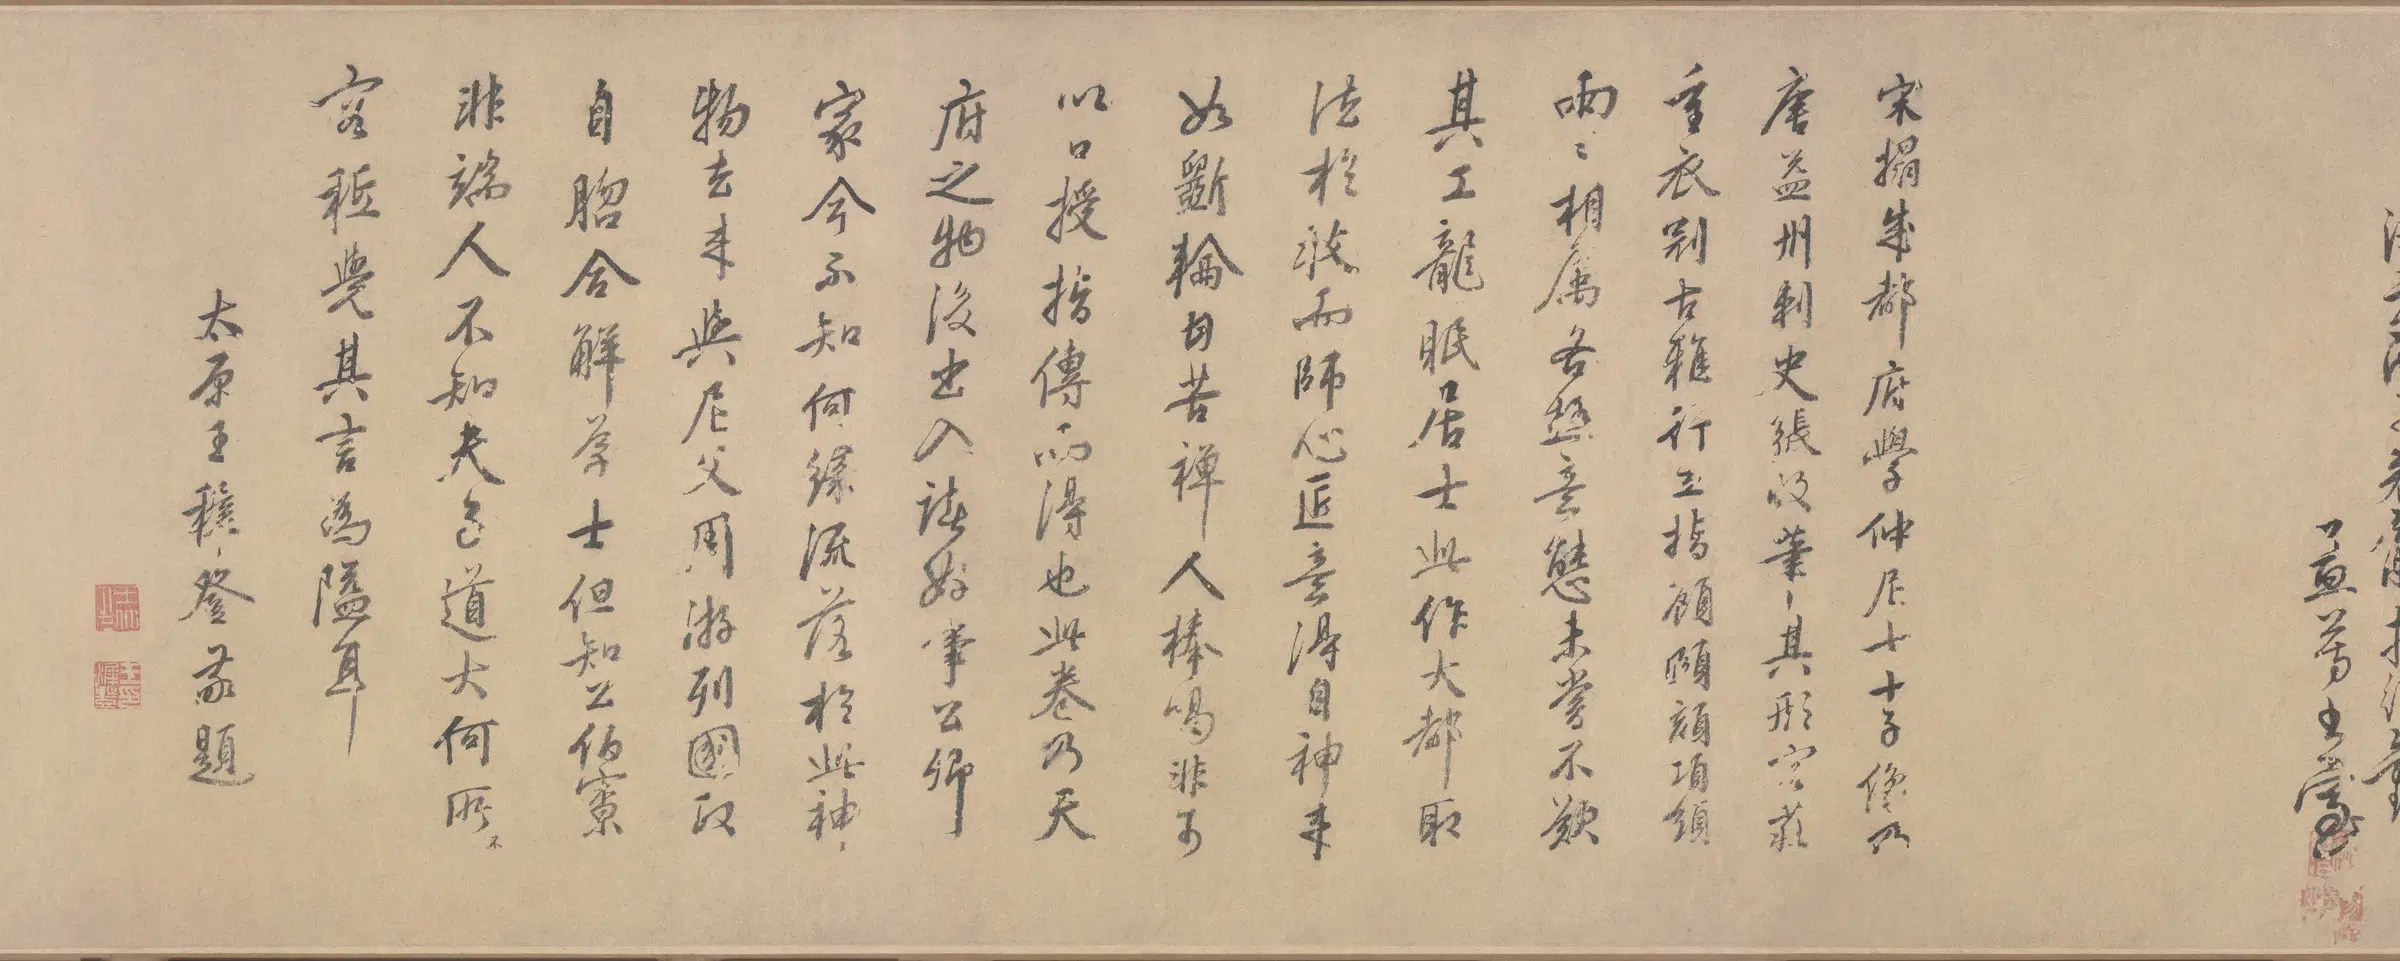 宋搨成都府學仲尼七十子像乃
唐益州刺史張收筆其形容莊
重衣劍古雅行立指顧頤頷項領
兩〻相屬各極意態未嘗不歎
其工龍眠居士此作大都取
法於收而師心匠意得自神來
如斲輪甘苦禪人棒喝非可
以口授指傳而得也此卷乃天
府之物後出入諸好事公卿
家今不知何緣流落於此神
物去來與尼父周游列國政
自脗合解學士但知公伯寮
非端人不知夫子道大何所不
容秪覺其言為隘耳
太原王穉登敬題